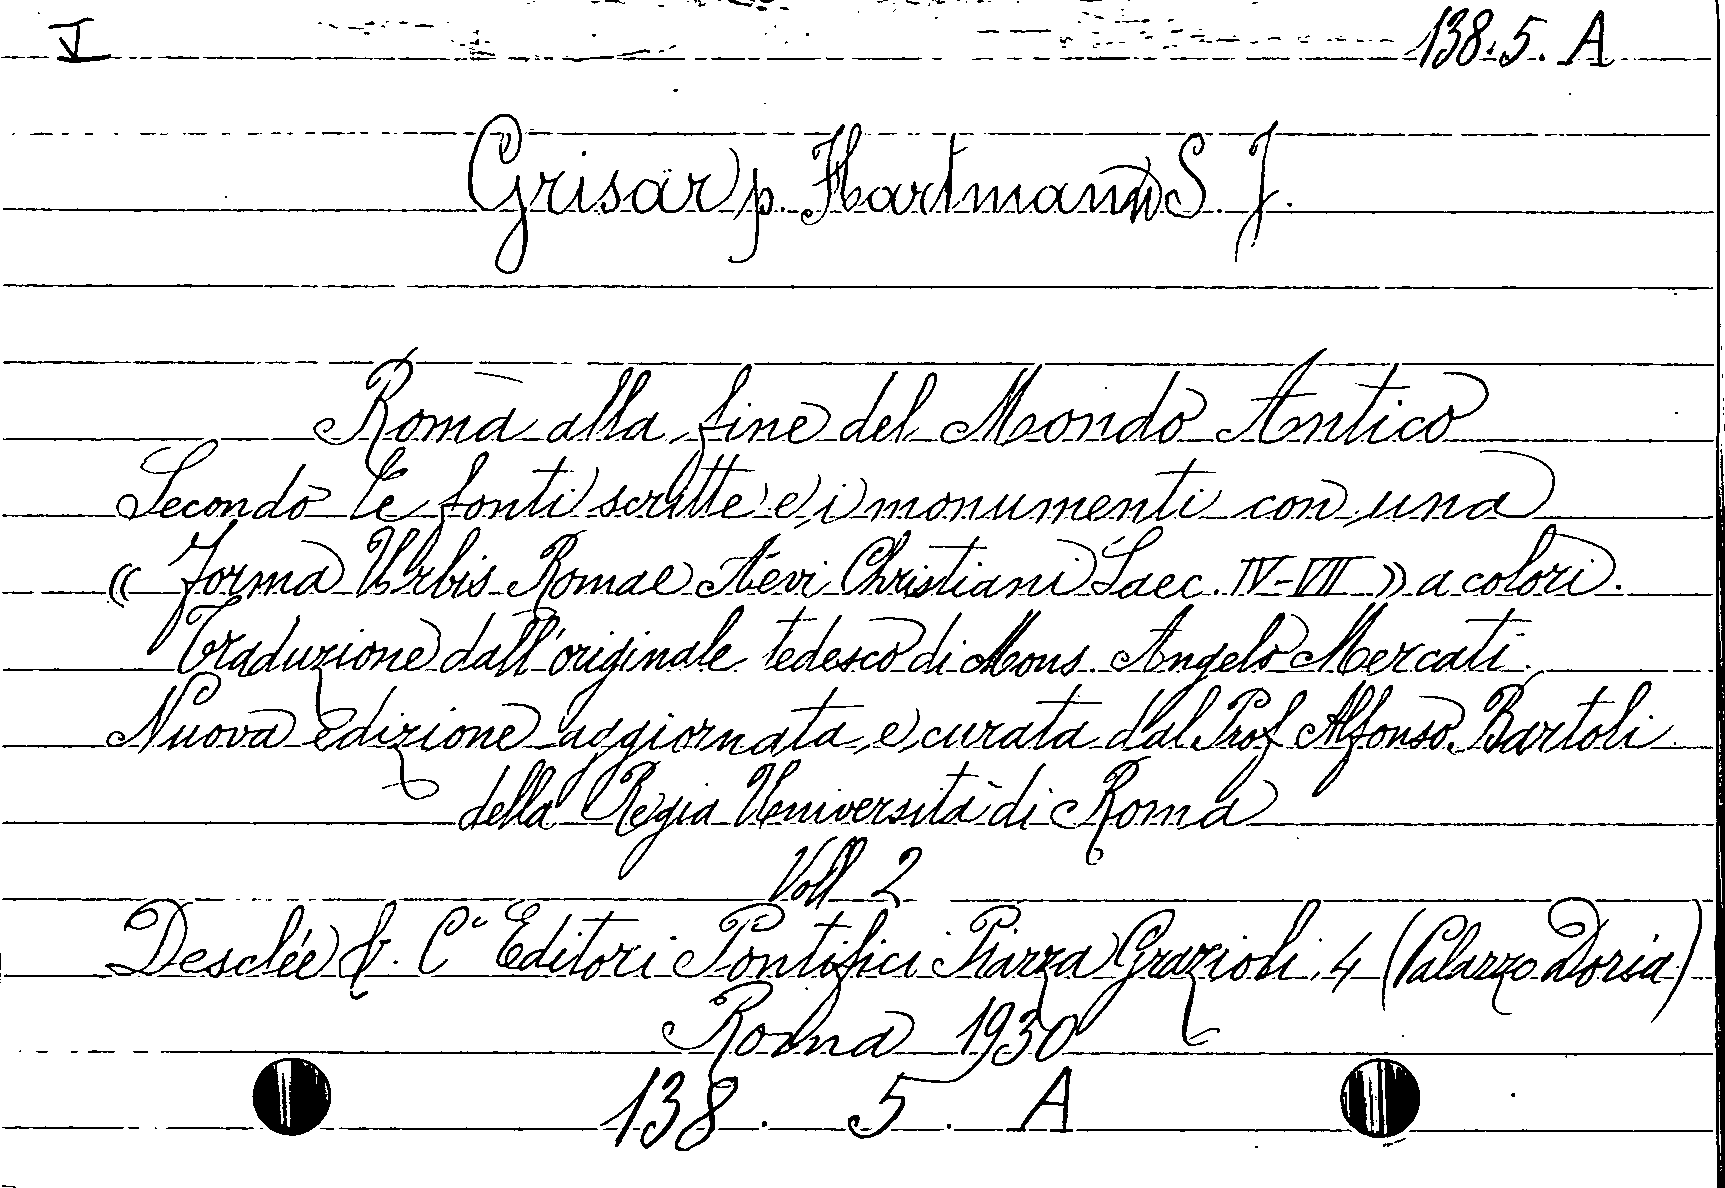 V 138.5. A
Grisar p. Hartmann S. J.
Roma alla fine del Mondo Antico
Secondo le fonti scritte e i monumenti con una
« Forma Urbis Romae Aevi Christiani Saec. IV-VII » a colori.
Traduzione dall'originale tedesco di Mons. Angelo Mercati.
Nuova edizione aggiornata e curata dal Prof Alfonso Bartoli
della Regia Università di Roma
Voll 2
Desclée & C. Editori Pontifici Piazza Grazioli, 4 (Palazzo Doria)
Roma 1930
138. 5. A